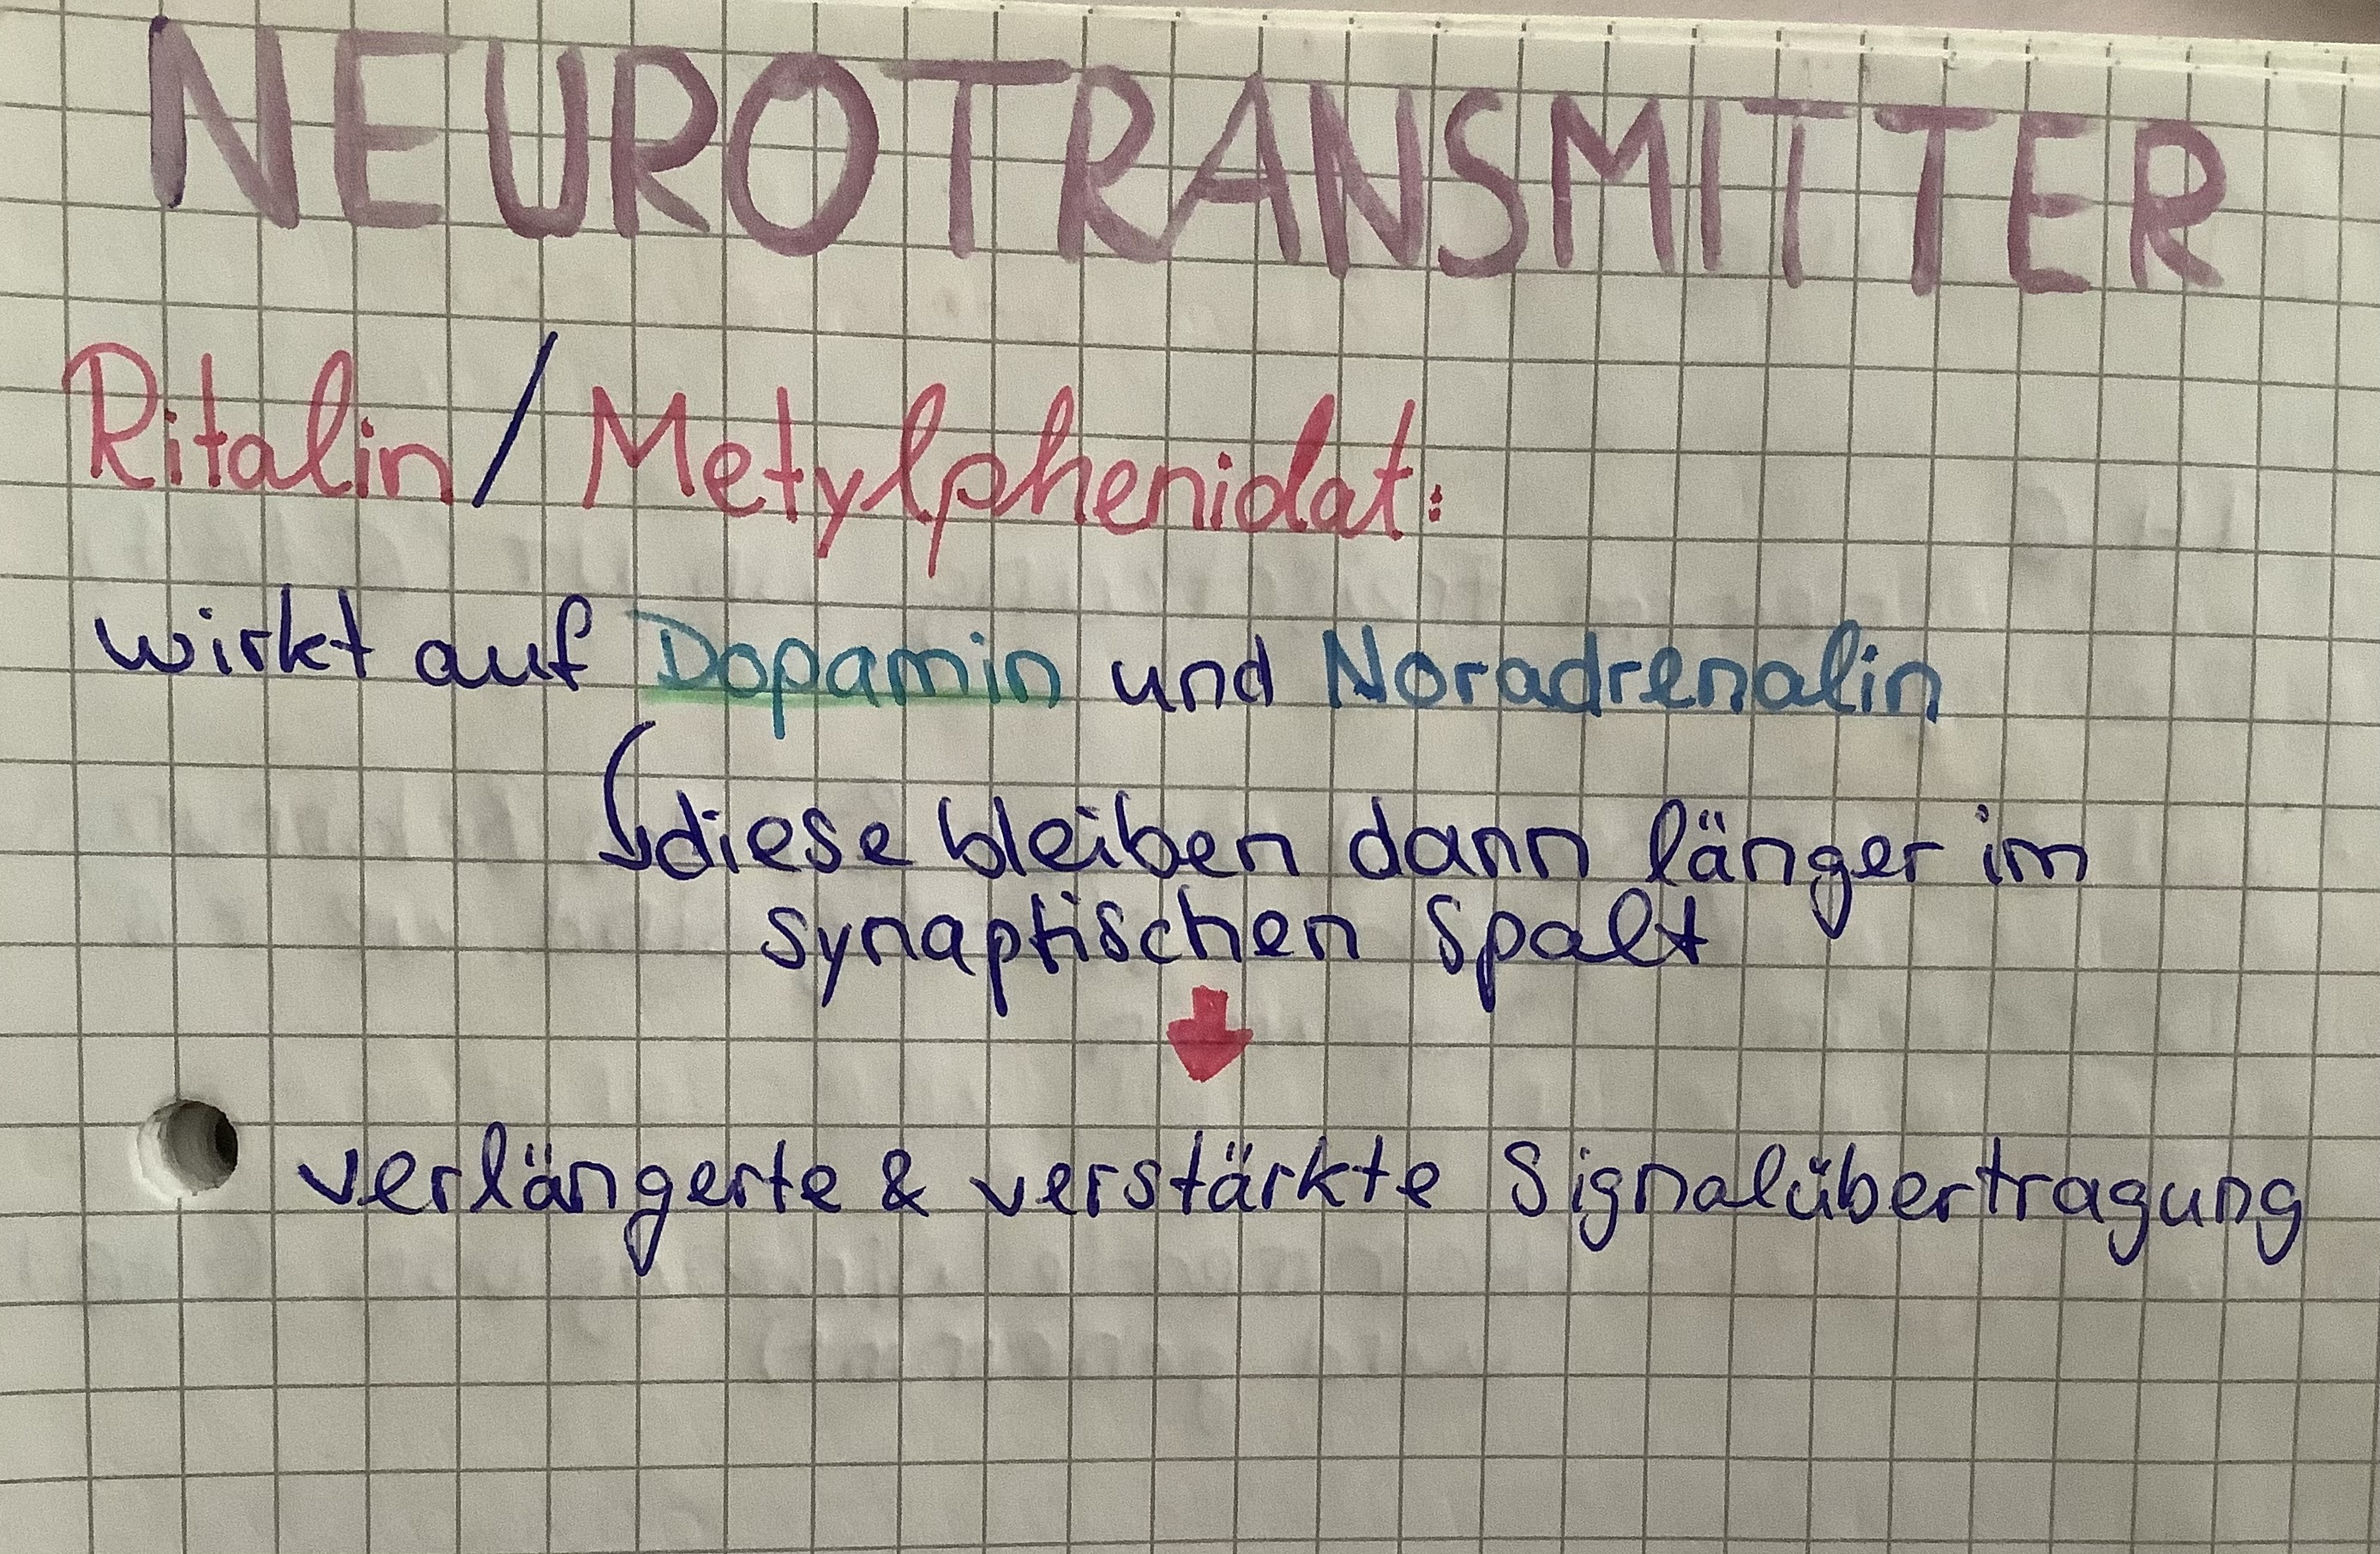 NEUROTRANSMITTER
Ritalin / Metylphenidat:
wirkt auf Dopamin und Noradrenalin
diese bleiben dann länger im
synaptischen Spalt
verlängerte & verstärkte Signalübertragung